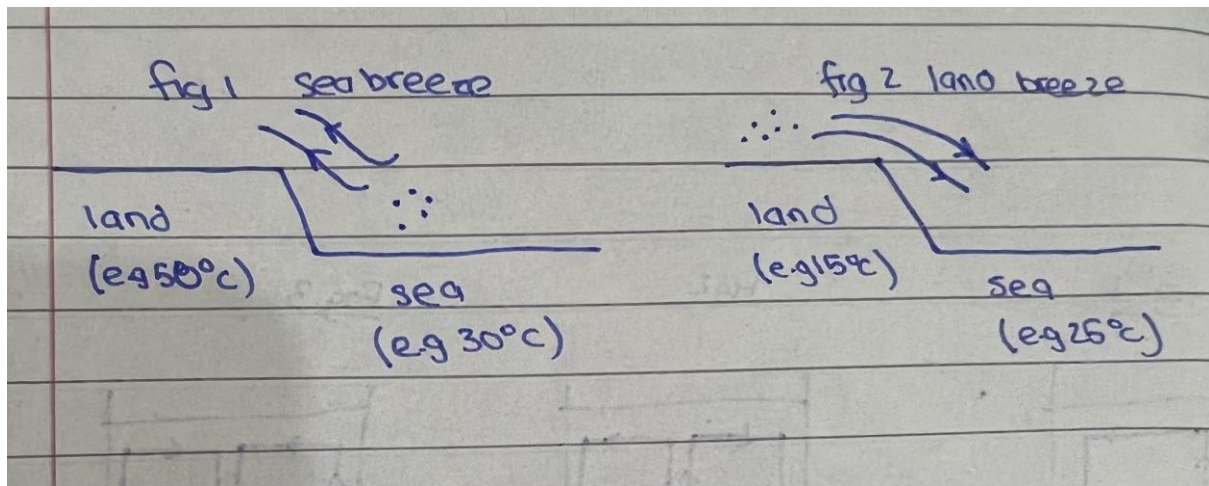 fig 1 sea breeze
land
(e.g 50°C)
sea
(e.g 30°C)
fig 2 land breeze
land
(e.g 15°C)
sea
(e.g 25°C)